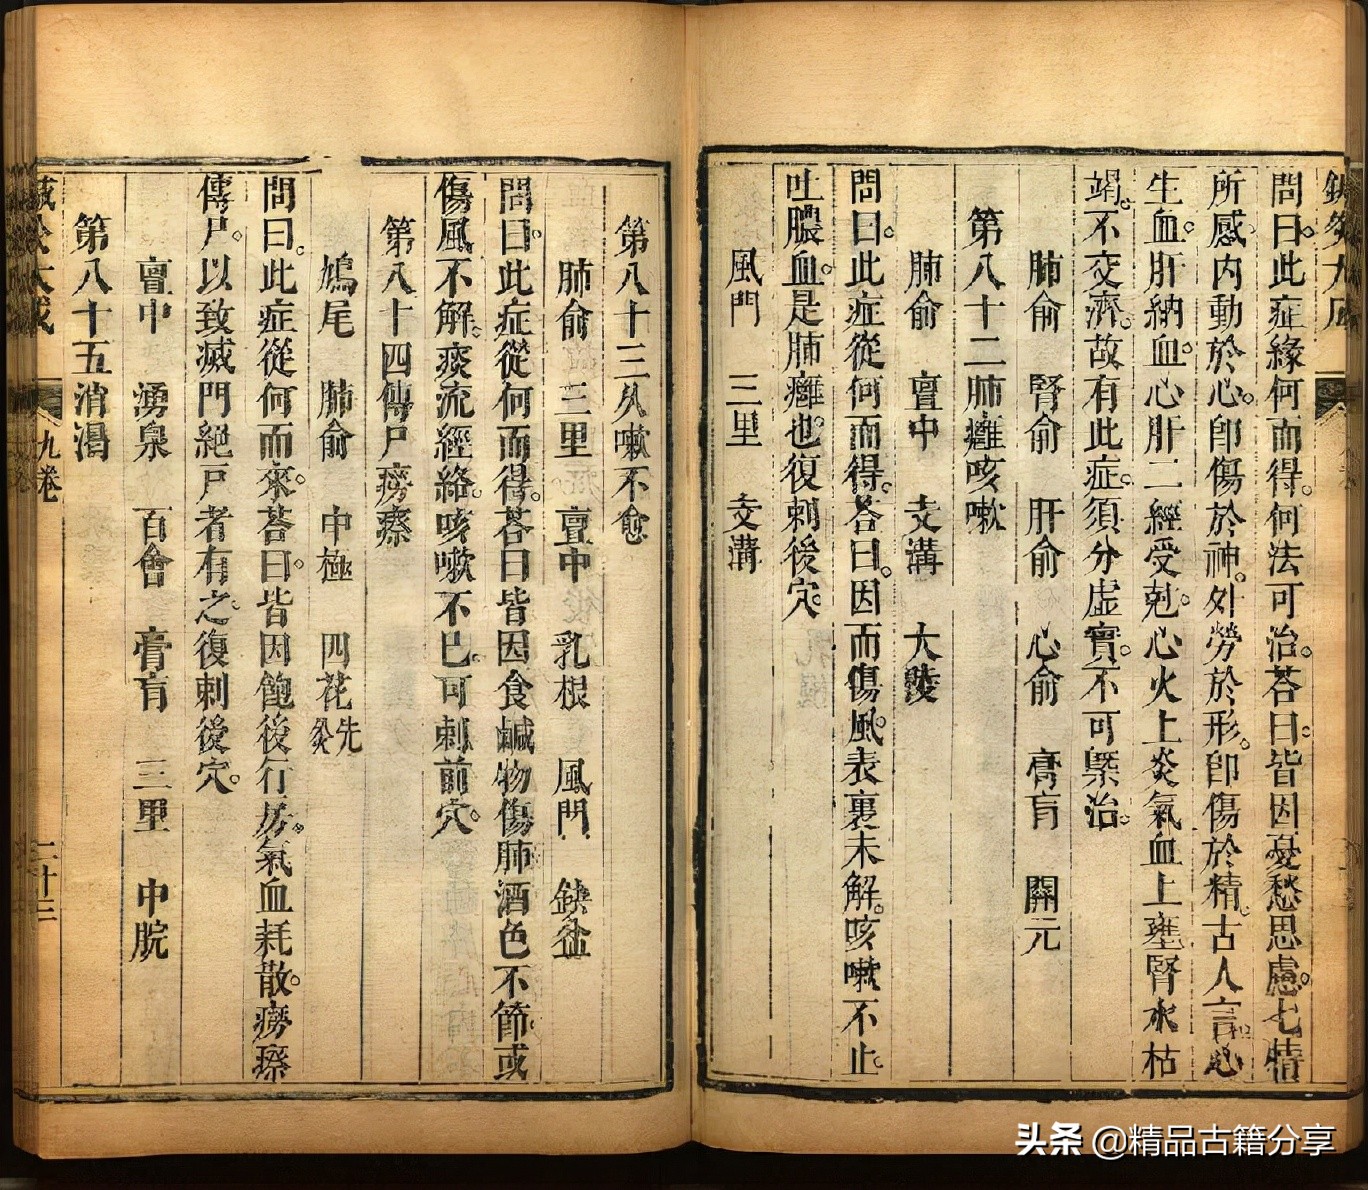 問曰此症緣何而得何法可治答曰皆因憂愁思慮七情
所感内動於心卽傷於神外勞於形卽傷於精古人言心
生血肝納血心肝二經受尅心火上炎氣血上壅腎水枯
竭不交濟故有此症須分虛實不可槩治
肺俞 腎俞 肝俞 心俞 膏肓 關元
第八十二肺癰咳嗽
肺俞 亶中 支溝 大陵
問曰此症從何而得答曰因而傷風表裏未解咳嗽不止
吐膿血是肺癰也復刺後穴
風門 三里 支溝
第八十三久嗽不愈
肺俞 三里 亶中 乳根 風門 鈌盆
問曰此症從何而得答曰皆因食鹹物傷肺酒色不節或
傷風不解痰流經絡咳嗽不已可刺前穴
第八十四傳尸癆瘵
鳩尾 肺俞 中極 四花先灸
問曰此症從何而來答曰皆因飽後行房氣血耗散癆瘵
傳尸以致滅門絕戶者有之復刺後穴
亶中 湧泉 百會 膏肓 三里 中脘
第八十五消渴
九卷 二十三
头条 @精品古籍分享